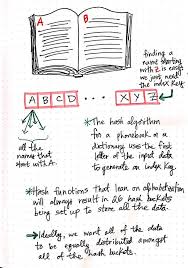 A B
finding a
name starting
with Z is easy
we just need
the index key.
A B C D ... X Y Z
all the
names that
start with A.
* The hash algorithm
for a phonebook or a
dictionary uses the first
letter of the input data
to generate an index key.
* Hash functions that lean on alphabetization
will always result in 26 hash buckets
being set up to store all the data.
→ Ideally, we want all of the data
to be equally distributed amongst
all of the hash buckets.